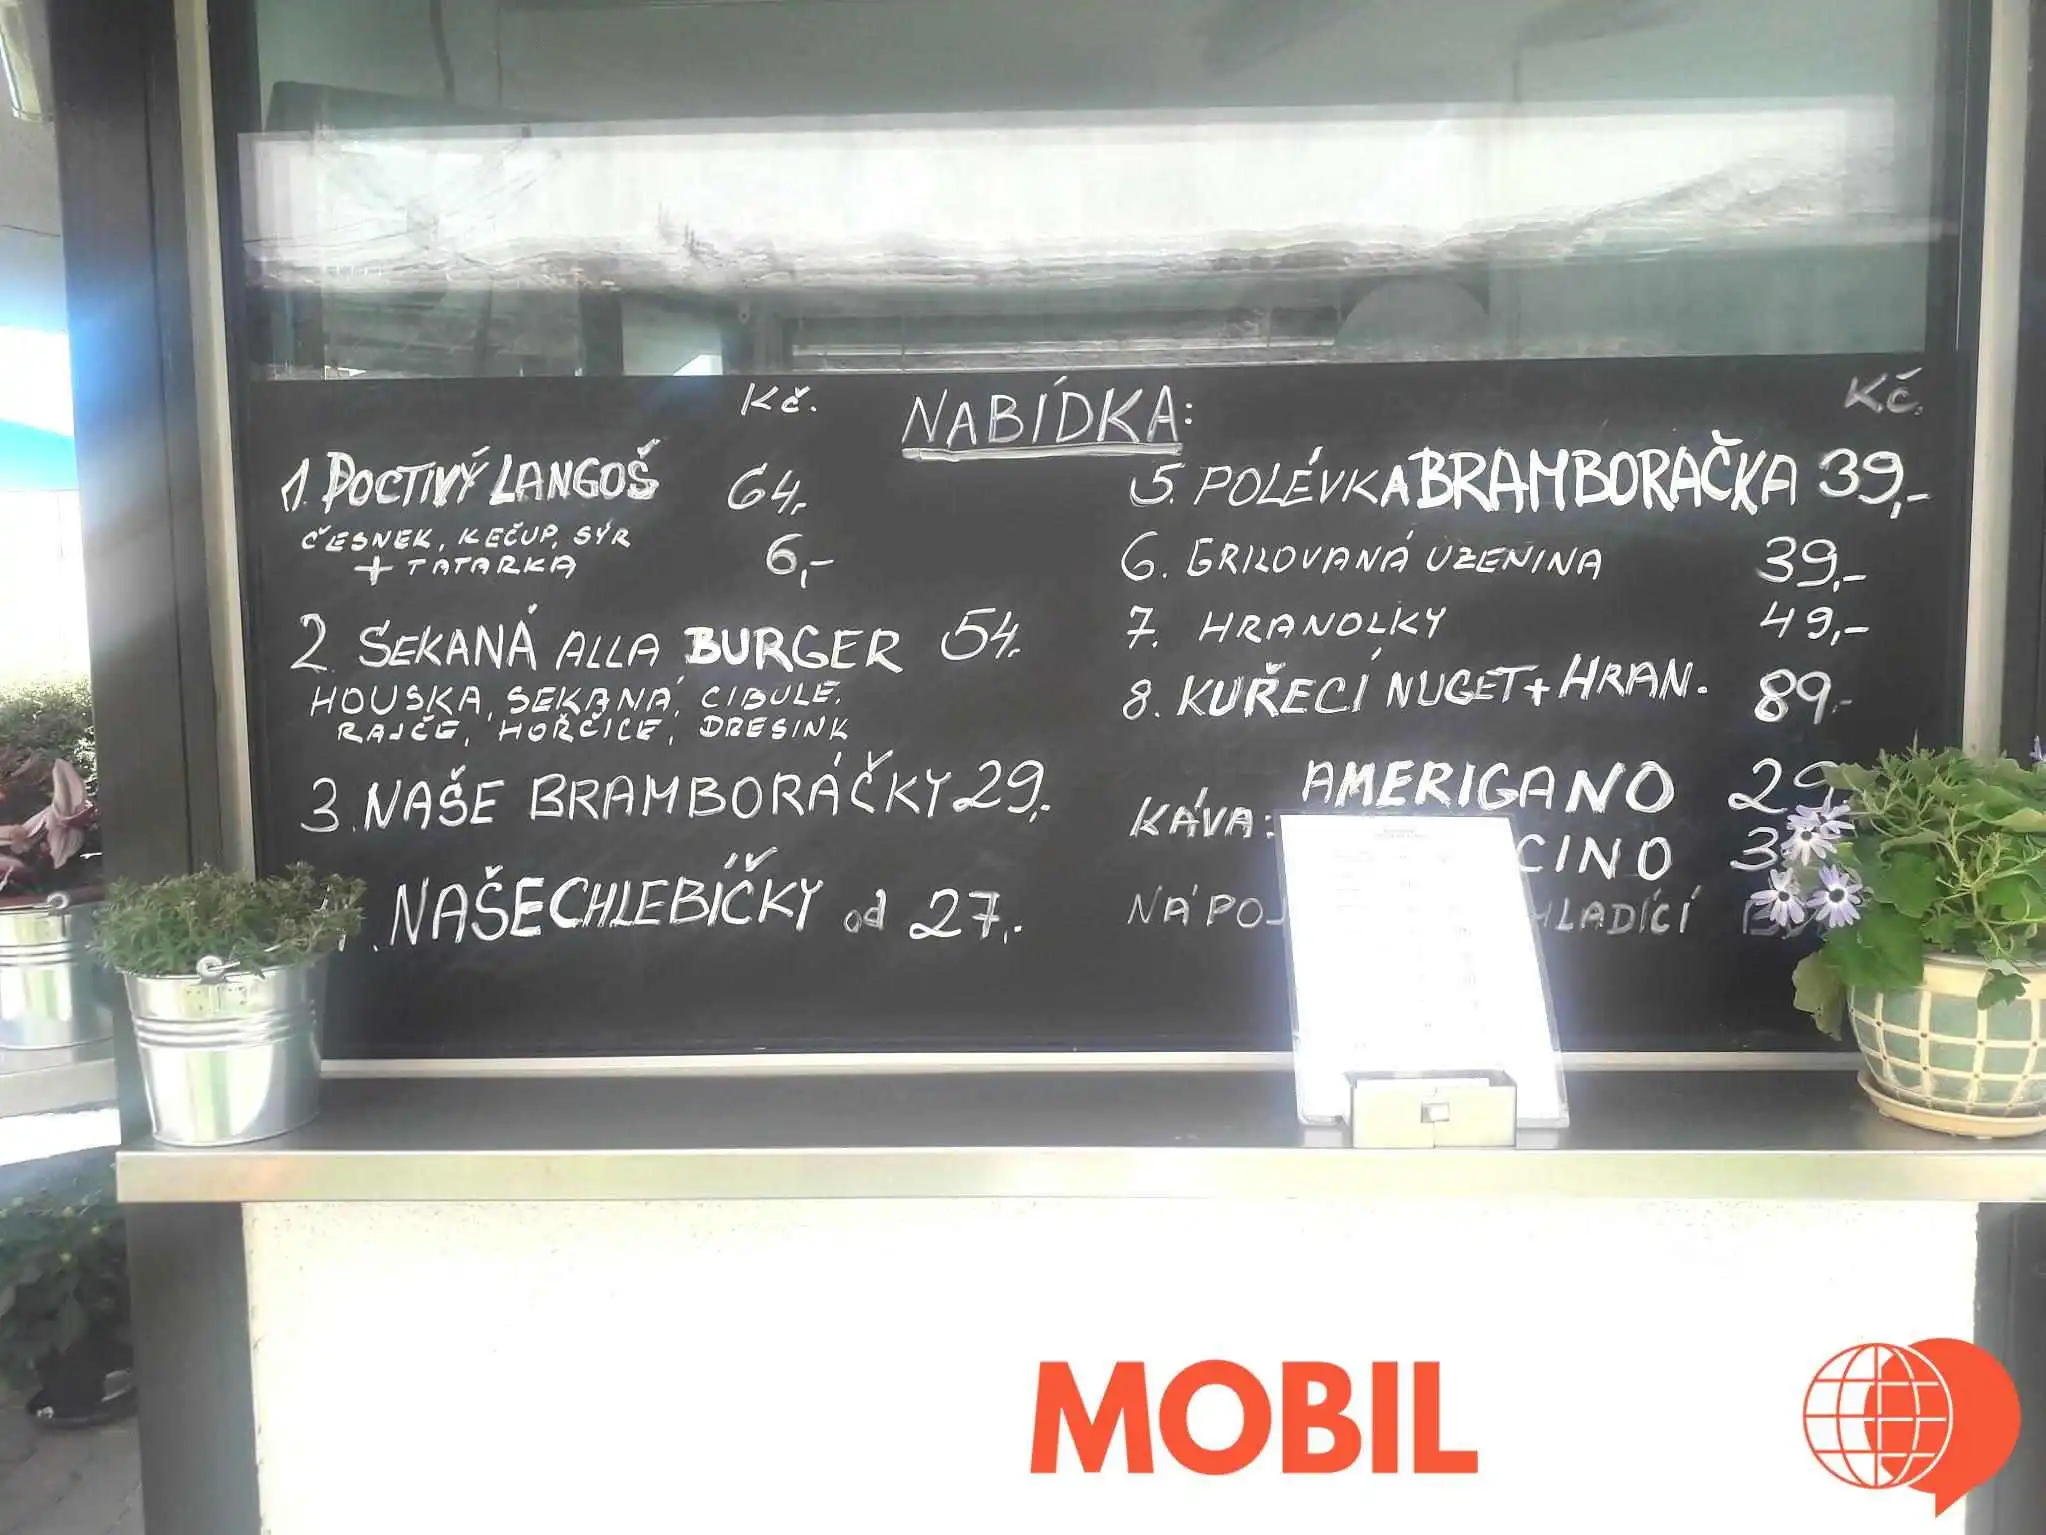 Kč.
NABÍDKA:
Kč.
1. POCTIVÝ LANGOŠ 64,-
ČESNEK, KEČUP, SÝR
+ TATARKA 6,-
2. SEKANÁ ALLA BURGER 54,-
HOUSKA, SEKANÁ, CIBULE,
RAJČE, HOŘČICE, DRESINK
3. NAŠE BRAMBORÁČKY 29,-
NAŠE CHLEBÍČKY od 27,-
5. POLÉVKA BRAMBORAČKA 39,-
6. GRILOVANÁ UZENINA 39,-
7. HRANOLKY 49,-
8. KUŘECÍ NUGET + HRAN. 89,-
KÁVA: AMERICANO
MOBIL